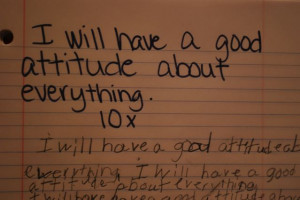 I will have a good
attitude about
everything.
10x
I will have a good attitude ab
everything I will have a good
attitude about everything
I will have a good attitude about